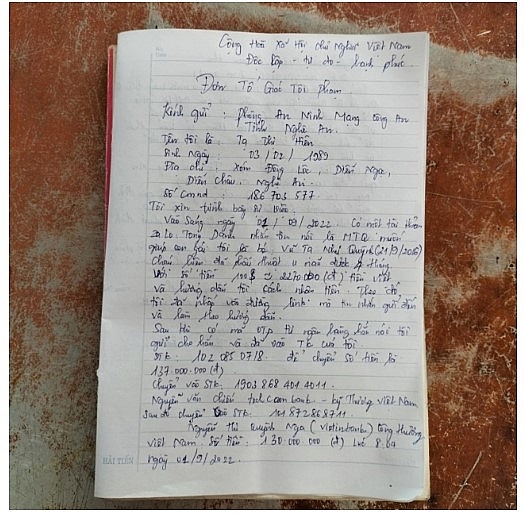 Cộng Hoà Xã Hội chủ Nghĩa Việt Nam
Độc lập - tự do - hạnh phúc
Đơn Tố Giác Tội Phạm
Kính gửi : Phòng An Ninh Mạng Công An
Tỉnh Nghệ An.
Tên tôi là : Tạ Thị Hiền
Sinh Ngày : 03 / 02 / 1989
Địa chỉ : Xóm Đồng Lộc, Diễn Ngọc,
Diễn Châu. Nghệ An.
Số Cmnd : 186 703 577
Tôi xin trình bày sự việc:
Vào sáng ngày 01 / 09 / 2022. Có một tài khoản
Zalo nhắn tin nói là MTQ muốn
giúp con gái tôi là bé Vũ Tạ Như Quỳnh (21/9/2016)
Cháu hiện đã phẫu thuật u não được tháng
Với số tiền 100 $ = 2270 000 (đ) tiền việt
và hướng dẫn tôi cách nhận tiền. Theo đó
tôi đã nhập vào đường link mà tin nhắn gửi đến
và làm theo hướng dẫn.
Sau khi có mã OTP từ ngân hàng hắn nói tôi
gửi cho hắn và đã vào TK của tôi
STK : 102 085 0718. để chuyển số tiền là
137.000.000 (đ).
Chuyển vào STK: 1903 868 401 4011.
Nguyễn văn chiến techcombank - kỹ Thương Việt Nam
sau đó chuyển vào STK: 101 872 868 711.
Nguyễn Thị Quỳnh Nga (vietinbank) Công thương
Việt Nam. Số tiền : 130.000.000 (đ) Lúc 8.04
ngày 01/9/2022.
HẢI TIẾN